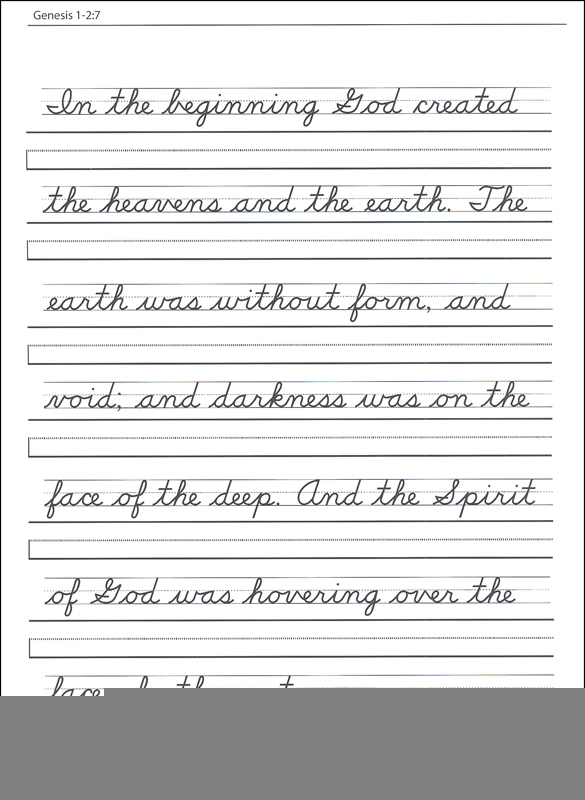 Genesis 1-2:7
In the beginning God created
the heavens and the earth. The
earth was without form, and
void; and darkness was on the
face of the deep. And the Spirit
of God was hovering over the
face